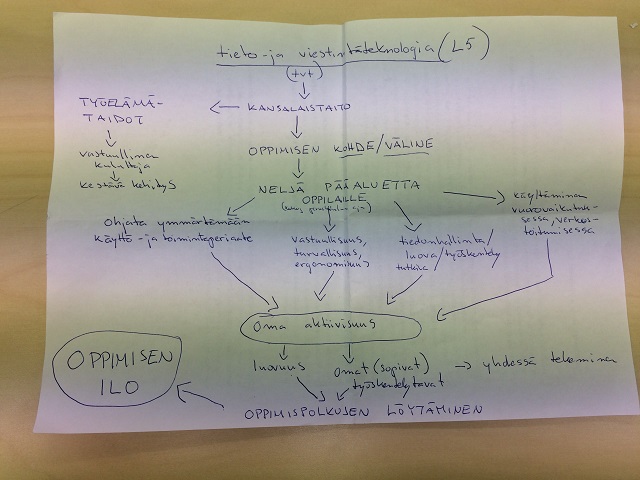 tieto- ja viestintäteknologia (L5)
(tvt)
TYÖELÄMÄ-
TAIDOT
KANSALAISTAITO
vastuullinen
kuluttaja
kestävä kehitys
OPPIMISEN KOHDE/VÄLINE
NELJÄ PÄÄALUETTA
OPPILAILLE
Ohjata ymmärtämään
käyttö- ja toimintaperiaate
vastuullisuus,
turvallisuus,
ergonomisuus
tiedonhallinta/
luova/työskentely
tutkiva
käyttäminen
vuorovaikutuk-
sessa, verkos-
toitumisessa
Oma aktiivisuus
luovuus
omat (sopivat)
työskentelytavat
yhdessä tekeminen
OPPIMISPOLKUJEN LÖYTÄMINEN
OPPIMISEN
ILO